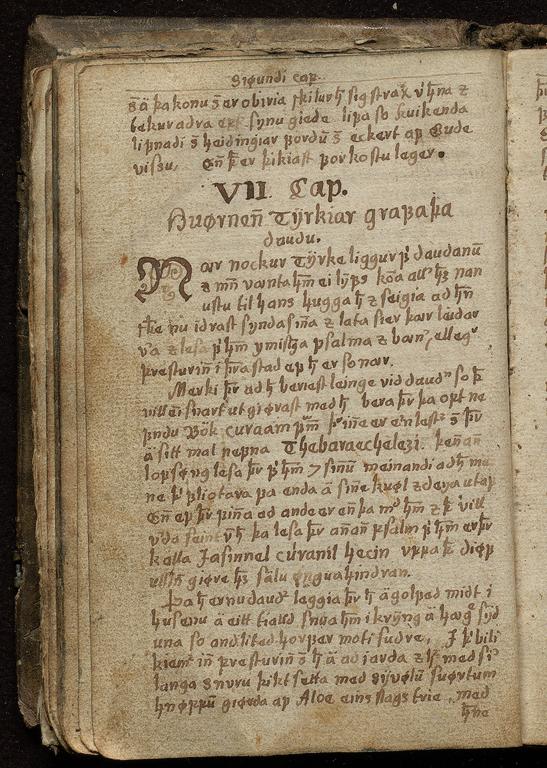 Siøundi cap.
s̄ ä þa konu s̄ er obiria skilur h̄ sig strax v̄ h̄na z
tekur adra synu giede lipa so kuikenda
lipnadi s̄ heidingiar þordū s̄ eckert ap Gude
vissu, Eñ þ̄ er þikiast þor kostu leger.
VII Cap.
Huørneñ Tÿrkiar graꝼa þa
daudu.
Nar nockur Tÿrke liggur þ̄ daudanū
z mn̄ vænta h̄m ei lÿfs koa all h̄s nan
ustu til hans hugga h̄ z seigia ad h̄n
þ̄ke nu idrast syndasiña z lata sier þær leidar
v̄a z lesa þ̄ h̄m ymissa psalma z bæn, elleg
presturiñ i þ̄ra stad ep h̄ er so nær.
Merki þ̄r ad h̄ beriest leinge vid daud so þ̄
vill ei snart utgiørast med h̄ bera þ̄r þa opt ne
þndu Bök curaam er enlest s̄ þ̄r
ä sitt mal nepna Thebaraechelezi. þeñañ
lopsøng lesa þ̄r þ̄ h̄m 7 sinū meinandi ad h̄ mu
ne þ̄ pliotara þa enda ä siñe kuøl z deya utap
Eñ ep þ̄r piña ad ande er eñ þa m̄ h̄m z þ̄ vill
v̄da seint v̄ h̄ þa lesa þ̄r añañ psalm þ̄ h̄m er þ̄r
kalla Jasinnel curanil hecin uppa þ̄ diøp
ullin̄ giøre h̄s sälu øngua hindran.
Þa h̄ er nu daud leggia þ̄r h̄ ä golped midt i
husenu ä eitt tiald snua h̄m i kryng ä hægr̄ sÿd
una so andlited horper moti sudre, J þ̄ bili
kiem̄ iñ presturiñ s̄ h̄ ä ad jarda z h̄ med si
langa snuru þikt setta med siøvelū suørtum
hnøppū giørda ap Aloe eins slags trie, med
h̄ne